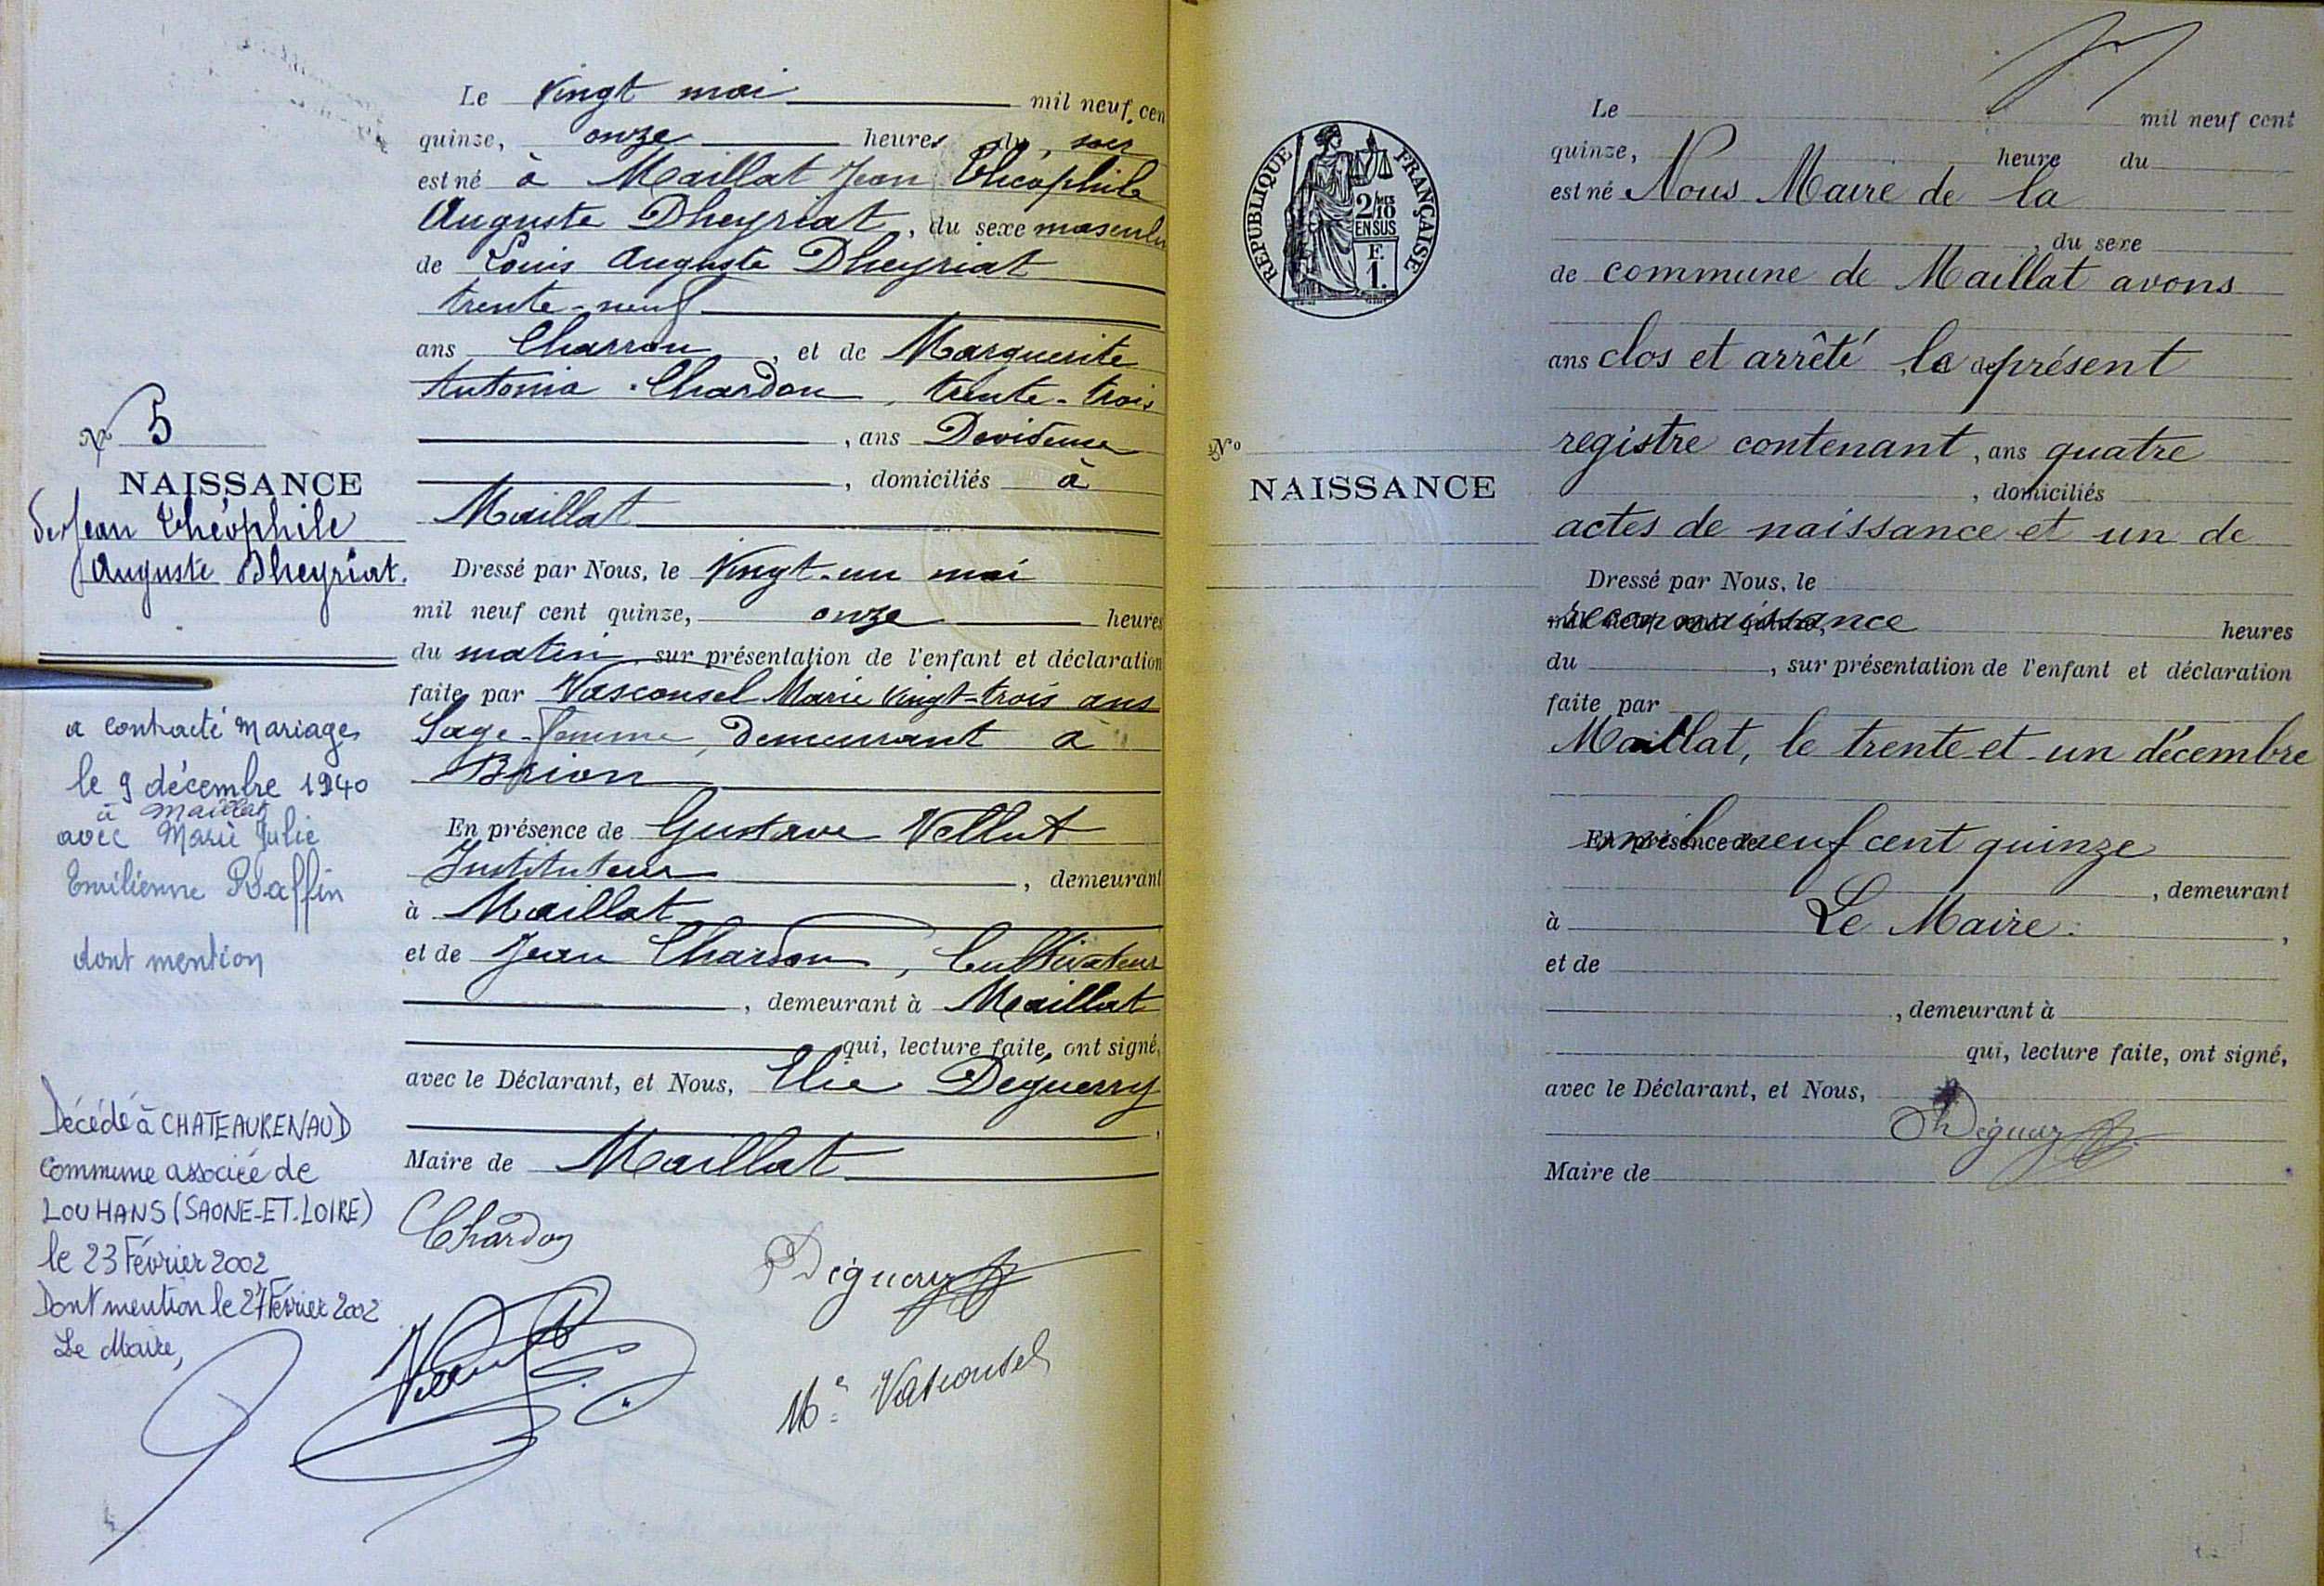 Le Vingt mai mil neuf cen
quinze, onze heures du soir
est né à Maillat Jean Théophile
Auguste Dheyriat, du sexe masculin
de Louis Auguste Dheyriat
trente-neuf
ans Charron, et de Marguerite
Antonia Chardon, trente-trois
, ans Devideuse
, domiciliés à
Maillat
Dressé par Nous, le Vingt-un mai
mil neuf cent quinze, onze heures
du matin, sur présentation de l'enfant et déclaration
faite par Vasconsel Marie Vingt-trois ans
Sage-femme, demeurant à
Brion
En présence de Gustave Vellut
Instituteur, demeurant
à Maillat
et de Jean Chardon, Cultivateur
, demeurant à Maillat
qui, lecture faite, ont signé,
avec le Déclarant, et Nous, Elie Deguerry
Maire de Maillat
Chardon
Déguerry
Vellut
Mie Vasconsel
No 5
NAISSANCE
de Jean Théophile
Auguste Dheyriat.
a contracté mariage
le 9 décembre 1940
à Maillat
avec Marie Julie
Emilienne Raffin
dont mention
Décédé à CHATEAURENAUD
commune associée de
LOUHANS (SAONE-ET-LOIRE)
le 23 Février 2002
Dont mention le 27 Février 2002
Le Maire,
RÉPUBLIQUE FRANÇAISE
2/10
EN SUS
F.
1.
No
NAISSANCE
Le mil neuf cent
quinze, heure du
est né Nous Maire de la
, du sexe
de commune de Maillat avons
ans clos et arrêté le de présent
registre contenant, ans quatre
, domiciliés
actes de naissance et un de
Dressé par Nous, le
mil neuf cent quinze, reconnaissance heures
du , sur présentation de l'enfant et déclaration
faite par
Maillat, le trente et un décembre
En présence de mil neuf cent quinze
, demeurant
à Le Maire.
et de
, demeurant à
qui, lecture faite, ont signé,
avec le Déclarant, et Nous,
Déguerry
Maire de